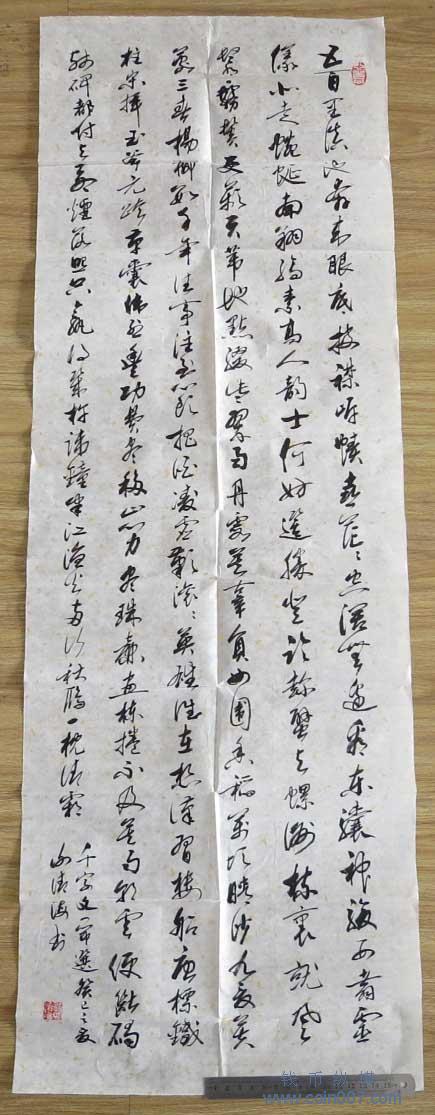 五百里滇池奔来眼底披襟岸帻喜茫茫空阔无边看东骧神骏西翥灵
仪北走蜿蜒南翔缟素高人韵士何妨选胜登临趁蟹屿螺洲梳裹就风
鬟雾鬓更蘋天苇地点缀些翠羽丹霞莫辜负四围香稻万顷晴沙九夏芙
蓉三春杨柳数千年往事注到心头把酒凌虚叹滚滚英雄谁在想汉习楼船唐标铁
柱宋挥玉斧元跨革囊伟烈丰功费尽移山心力尽珠帘画栋卷不及暮雨朝云便断碣
残碑都付与苍烟落照只赢得几杵疏钟半江渔火两行秋雁一枕清霜
癸巳之夏
书
钱币纵横
www.coin007.com